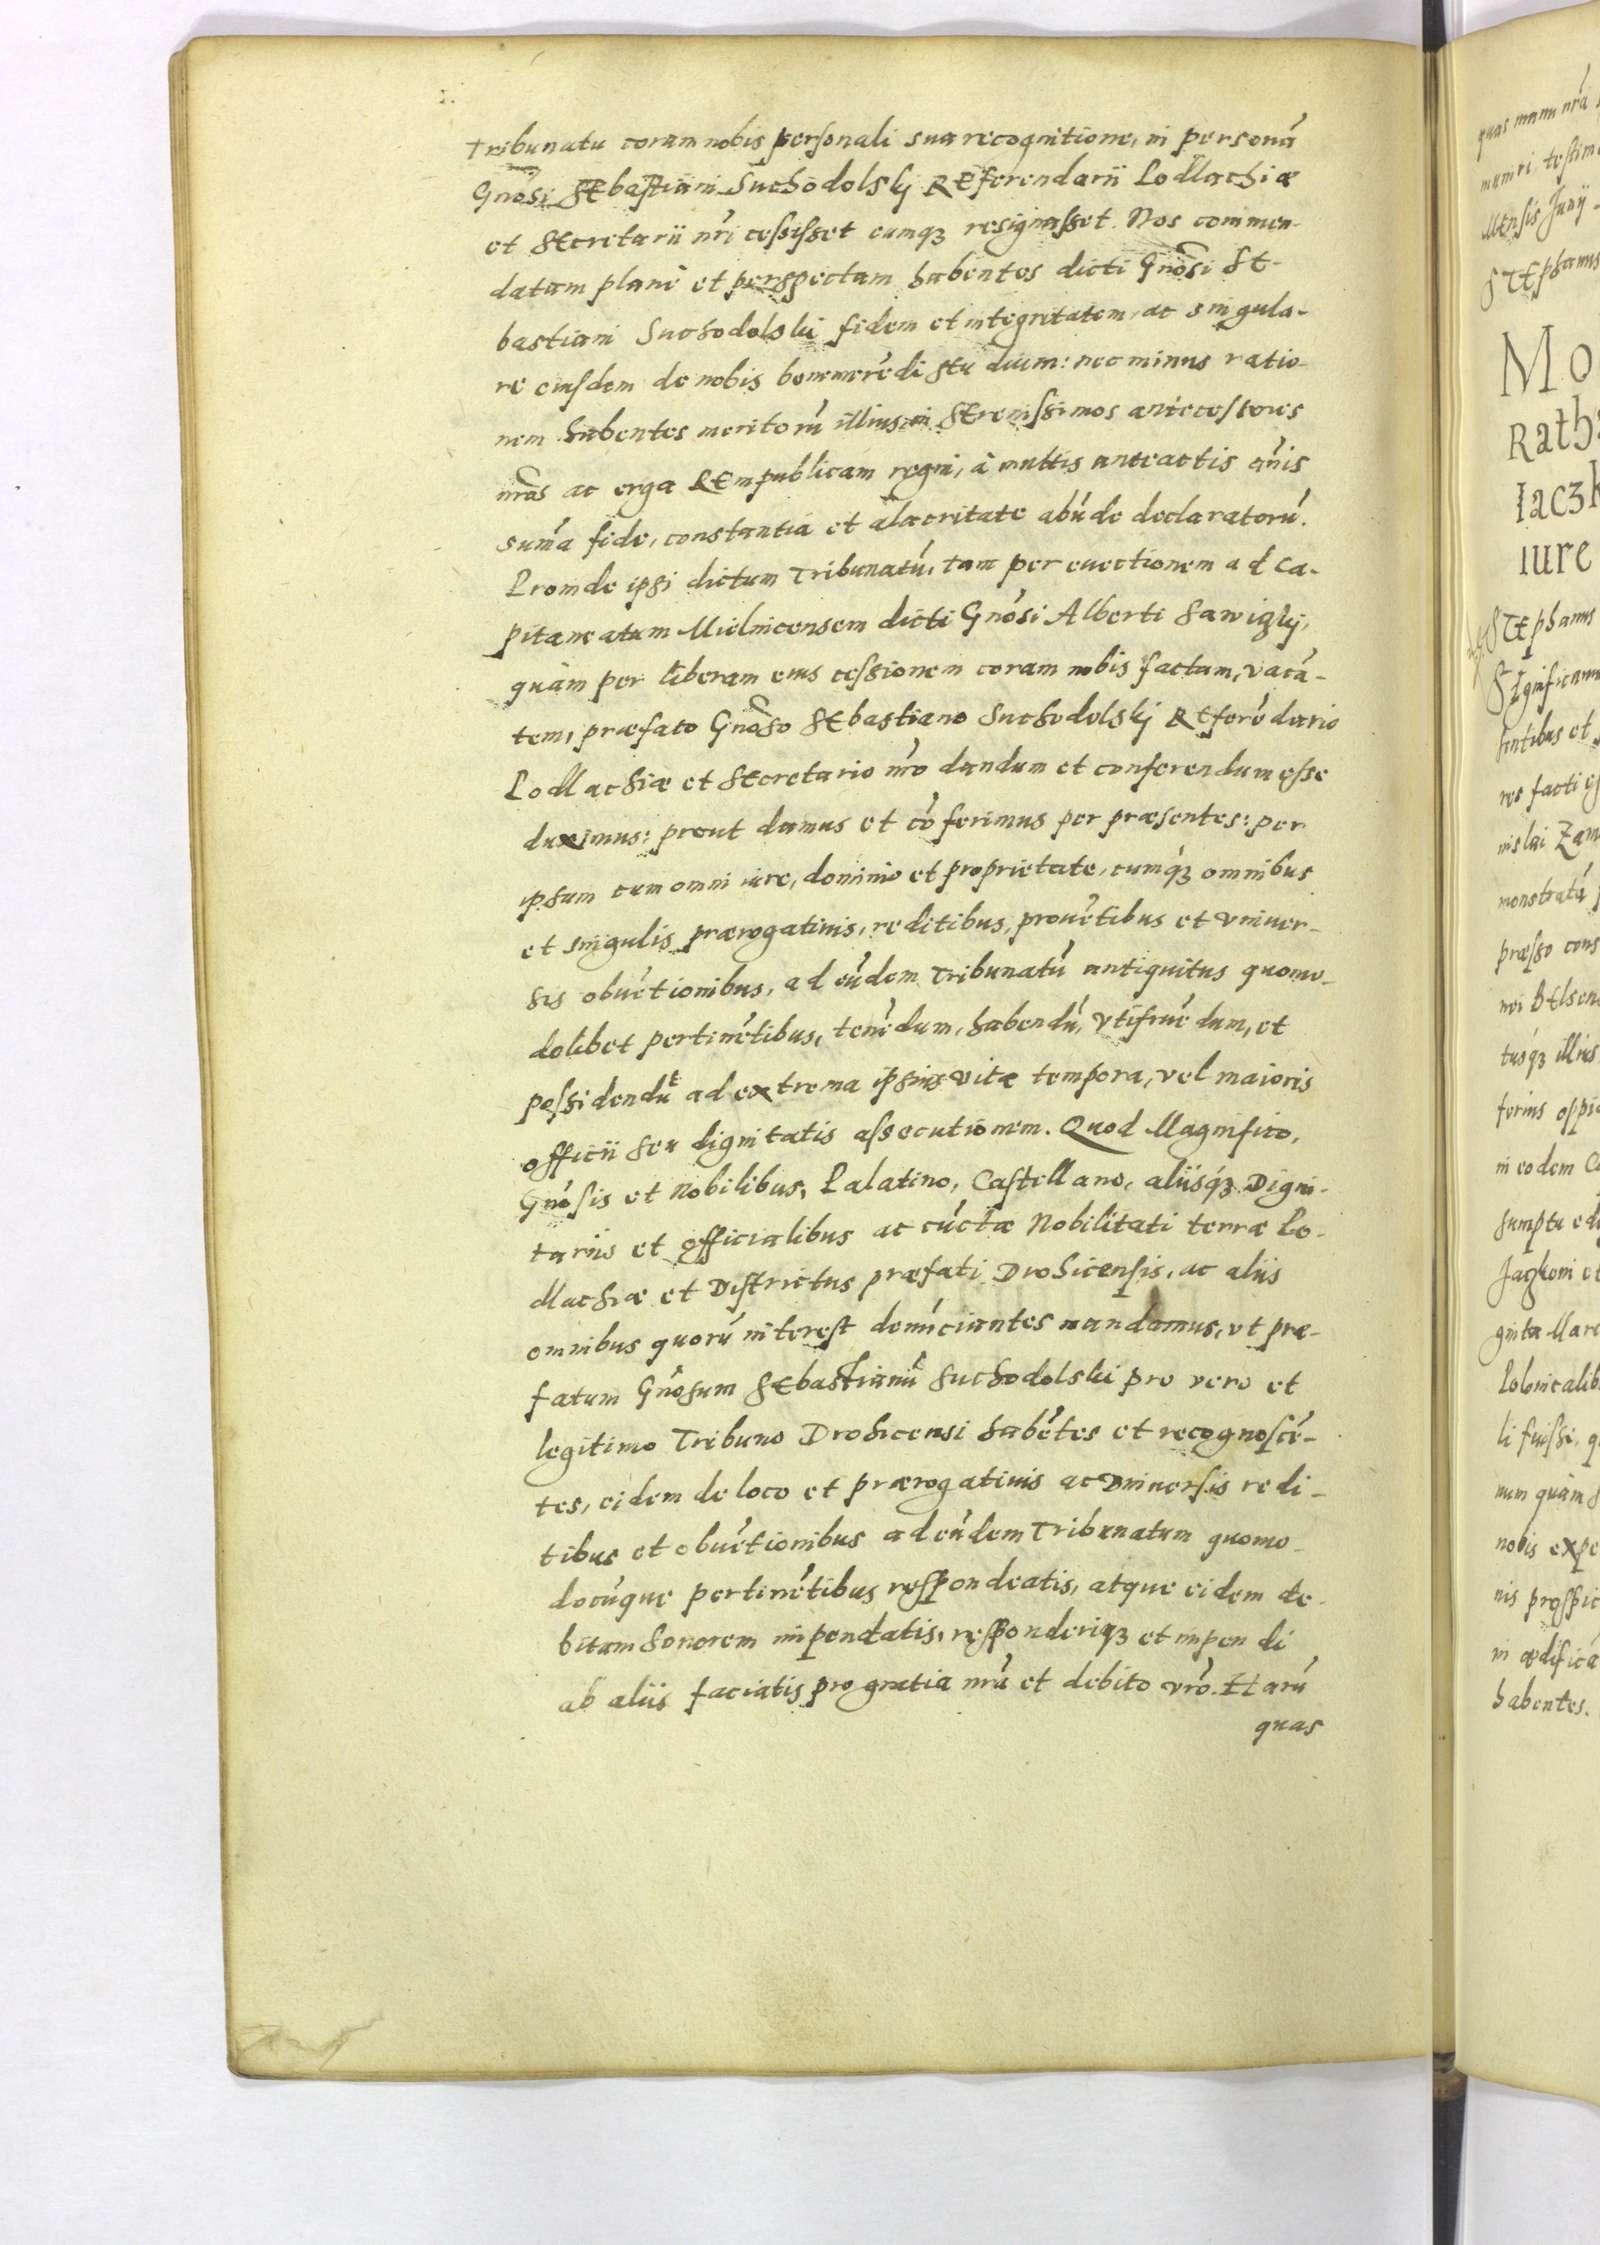 Tribunatu coram nobis personali sua recognitione, in personã
Gnõsi SEbastiani Suchodolskÿ REferendarii Podlachiæ
et SEcretarii nr̃i cessisset eumqꝫ resignasset. Nos commen-
datam planè et perspectam habentes dicti Gnõsi SE-
bastiani Suchodolski fidem et integritatem, ac singula-
re eiusdem de nobis benemerẽdi studium: nec minus ratio-
nem habentes meritorũ illius in SErenissimos antecessores
nr̃os ac erga REmpublicam regni, à multis anteactis ãnis
sum̃a fide, constantia et alacritate abũde declaratorũ.
Proinde ipsi dictum Tribunatũ, tam per euectionem ad Ca-
pitaneatum Mielnicensem dicti Gnõsi Alberti Sawiczkÿ,
quàm per liberam eius cessionem coram nobis factam, vacã-
tem, præfato Gnõso SEbastiano Suchodolskÿ REferẽdario
Podlachiæ et SEcretario nr̃o dandum et conferendum esse
duximus: prout damus et cõferimus per præsentes: per
ipsum cum omni iure, dominio et proprietate, cumqꝫ omnibus
et singulis prærogatiuis, reditibus, prouẽtibus et vniuer-
sis obuẽtionibus, ad eũdem Tribunatũ antiquitus quomo-
dolibet pertinẽtibus, tenẽdum, habendũ, vtifruẽdum, et
possidendũ ad extrema ipsius vitæ tempora, vel maioris
officii seu dignitatis assecutionem. Quod Magnifico,
Gnõsis et Nobilibus, Palatino, Castellano, aliisqꝫ Digni-
tariis et officialibus ac cũctæ Nobilitati terræ Po-
dlachiæ et Districtus præfati Drohicensis, ac aliis
omnibus quorũ interest denũciantes mandamus, vt præ-
fatum Gnõsum SEbastianũ Suchodolski pro vero et
legitimo Tribuno Drohicensi habẽtes et recognoscẽ-
tes, eidem de loco et prærogatiuis ac vniuersis redi-
tibus et obuẽtionibus ad eũdem Tribunatum quomo-
docũque pertinẽtibus respondeatis, atque eidem de-
bitam honorem impendatis, responderiqꝫ et impendi
ab aliis faciatis pro gratia nr̃a et debito vr̃o. Harũ
quas
quas manu nr̃a
Mensis Junÿ
STEphanus
MO
Rath
Iaczk
iure
STEphanus
SIgnificamus
res facti
nislai Zam
monstratã
præsso cons
tusqꝫ illius
in eodem
sumptu
ginta Marc
Polonicalib
num quàm
nobis expe
in ædificã
habentes.